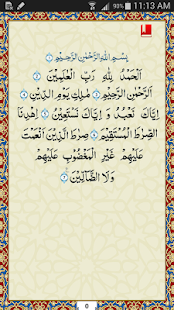 11:13 AM
بِسْمِ اللهِ الرَّحْمٰنِ الرَّحِيْمِ ①
اَلْحَمْدُ لِلّٰهِ رَبِّ الْعٰلَمِيْنَ ②
الرَّحْمٰنِ الرَّحِيْمِ ③ مٰلِكِ يَوْمِ الدِّيْنِ ④
اِيَّاكَ نَعْبُدُ وَ اِيَّاكَ نَسْتَعِيْنُ ⑤ اِهْدِنَا
الصِّرَاطَ الْمُسْتَقِيْمَ ⑥ صِرَاطَ الَّذِيْنَ اَنْعَمْتَ
عَلَيْهِمْ غَيْرِ الْمَغْضُوْبِ عَلَيْهِمْ
وَلَا الضَّآلِّيْنَ ⑦
0